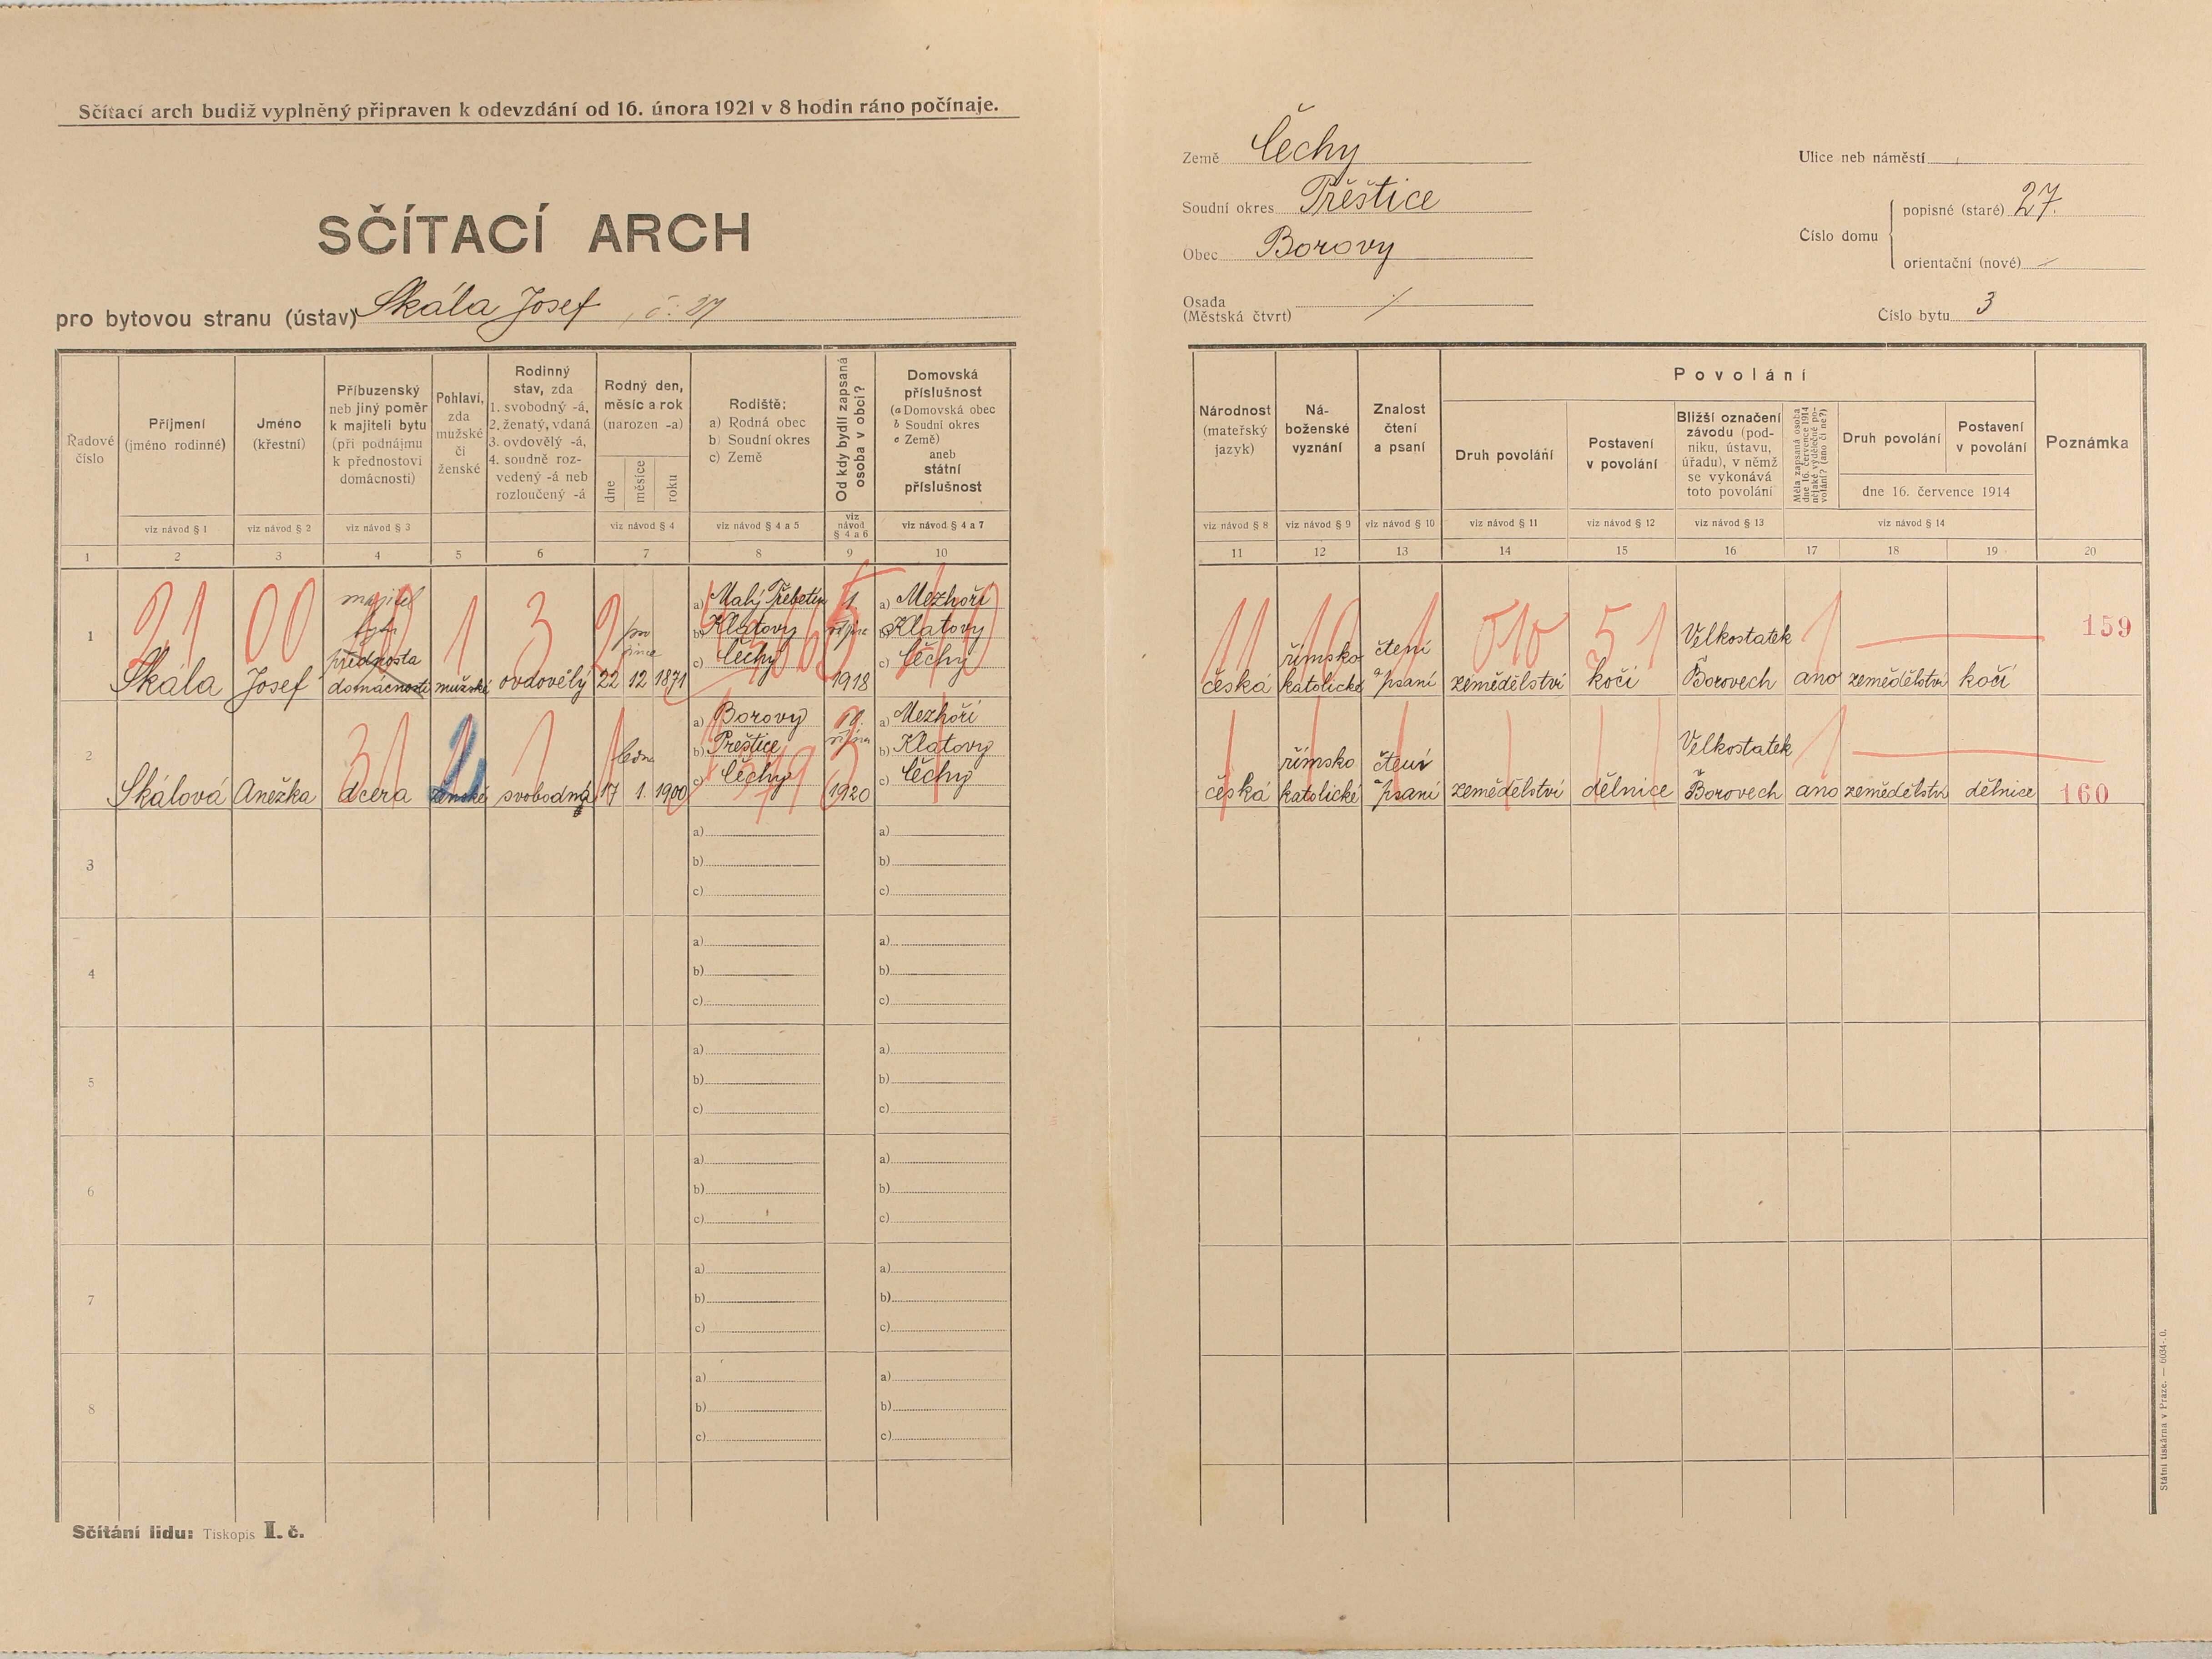 Sčítací arch budiž vyplněný připraven k odevzdání od 16. února 1921 v 8 hodin ráno počínaje.
SČÍTACÍ ARCH
pro bytovou stranu (ústav) Skála Josef, č. 27
Země Čechy
Soudní okres Přeštice
Obec Borovy
Osada
(Městská čtvrt)
Ulice neb náměstí
Číslo domu
popisné (staré) 27.
orientační (nové)
Číslo bytu 3
Řadové číslo
Příjmení (jméno rodinné)
Jméno (křestní)
Příbuzenský neb jiný poměr k majiteli bytu (při podnájmu k přednostovi domácnosti)
Pohlaví, zda mužské či ženské
Rodinný stav, zda 1. svobodný -á, 2. ženatý, vdaná 3. ovdovělý -á, 4. soudně rozvedený -á neb rozloučený -á
Rodný den, měsíc a rok (narozen -a)
dne měsíce roku
Rodiště: a) Rodná obec b) Soudní okres c) Země
Od kdy bydlí zapsaná osoba v obci?
Domovská příslušnost (a Domovská obec b Soudní okres c Země) aneb státní příslušnost
Národnost (mateřský jazyk)
Náboženské vyznání
Znalost čtení a psaní
Povolání
Druh povolání
Postavení v povolání
Bližší označení závodu (podniku, ústavu, úřadu), v němž se vykonává toto povolání
Měla zapsaná osoba dne 16. července 1914 nějaké výdělečné povolání? (ano či ne?)
Druh povolání
Postavení v povolání
dne 16. července 1914
Poznámka
viz návod § 1 viz návod § 2 viz návod § 3 viz návod § 4 viz návod § 4 a 5 viz návod § 4 a 6 viz návod § 4 a 7
viz návod § 8 viz návod § 9 viz návod § 10 viz návod § 11 viz návod § 12 viz návod § 13 viz návod § 14
1 2 3 4 5 6 7 8 9 10
11 12 13 14 15 16 17 18 19 20
1
Skála Josef
majitel bytu
přednosta domácnosti
mužské
ovdovělý
22 12 1871
a) Malý Třebetín
b) Klatovy
c) Čechy
1 října 1918
a) Mezhoří
b) Klatovy
c) Čechy
česká
římsko katolické
čtení a psaní
zemědělství
kočí
Velkostatek v Borovech
ano
zemědělství
kočí
159
2
Skálová Anežka
dcera
ženské
svobodná
17 1. 1900
a) Borovy
b) Přeštice
c) Čechy
1920
a) Mezhoří
b) Klatovy
c) Čechy
česká
římsko katolické
čtení a psaní
zemědělství
dělnice
Velkostatek v Borovech
ano
zemědělství
dělnice
160
3
a) a)
b) b)
c) c)
4
a) a)
b) b)
c) c)
5
a) a)
b) b)
c) c)
6
a) a)
b) b)
c) c)
7
a) a)
b) b)
c) c)
8
a) a)
b) b)
c) c)
Sčítání lidu: Tiskopis I. č.
Státní tiskárna v Praze. — 6034-.0.